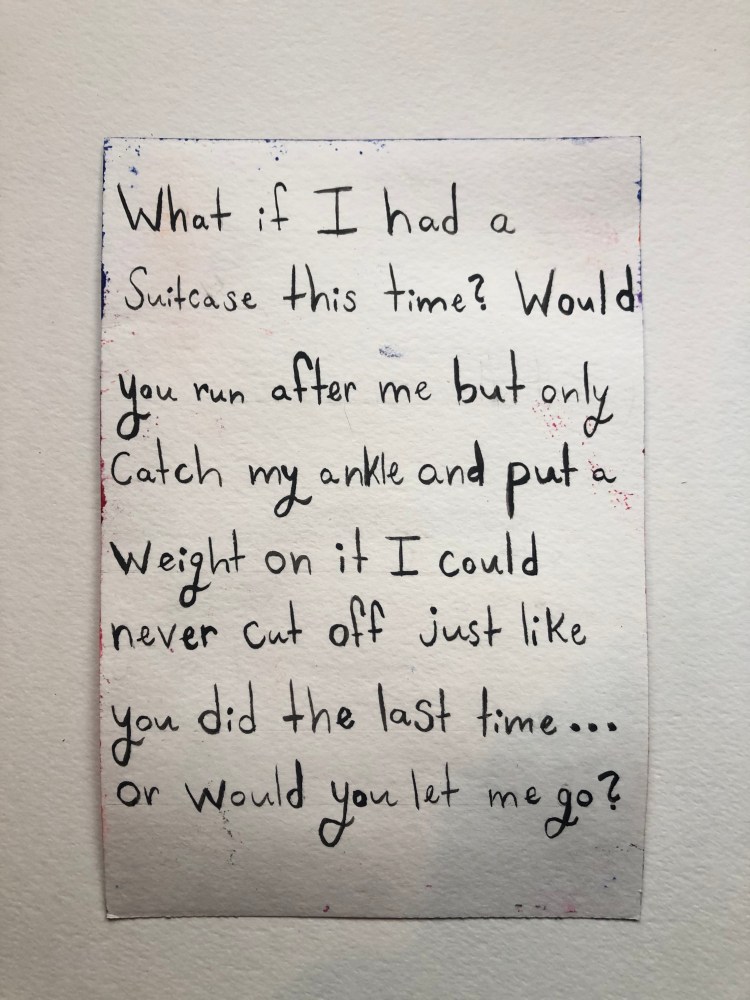 What if I had a
Suitcase this time? Would
you run after me but only
Catch my ankle and put a
Weight on it I could
never cut off just like
you did the last time...
or would you let me go?